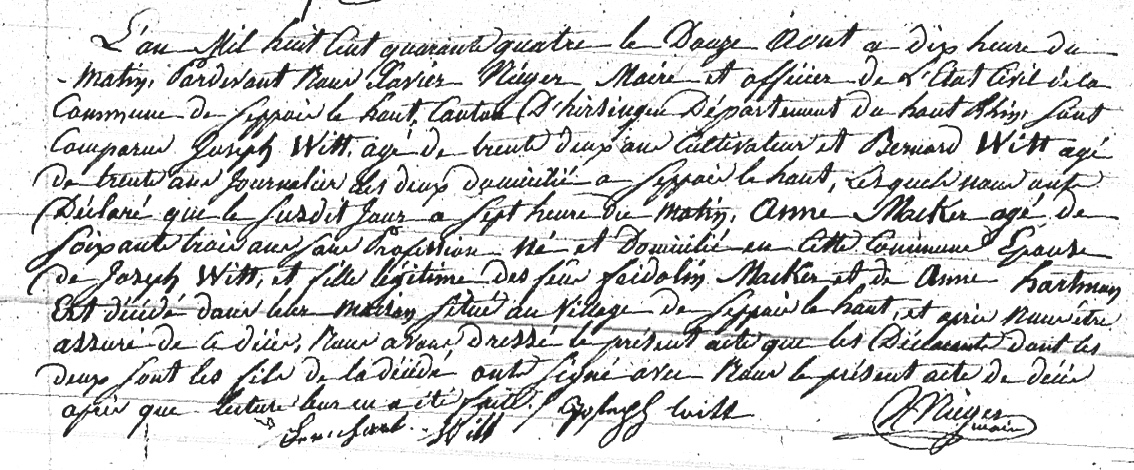 L'an Mil huit cent quarante quatre le Douze Aout a dix heure du
matin, Pardevant Nous Xavier Nieger Maire et officier de L'Etat Civil de la
Commune de Seppois le haut, Canton D'hirsingen Département du haut Rhin, sont
Comparus Joseph Witt, agé de trente deux ans Cultivateur et Bernard Witt agé
de trente ans Journalier les deux domicilié a Seppois le haut, Lesquels nous ont
Déclaré que le susdit Jour a Sept heure du matin, Anne Macker agé de
soixante trois ans sans Profession né et Domicilié en cette Commune Epouse
de Joseph Witt, et fille légitime des feue Fridolin Macker et de Anne hartman
Est décédé dans leur maison située au Village de Seppois le haut, et après nous être
assuré de ce décès, Nous avons dressé le présent acte que les Déclarants dont les
deux sont les fils de la décédé onts signé avec Nous le présent acte de décès
après que lecture leur en a été faite. Joseph Witt
Witt
X Nieger
maire